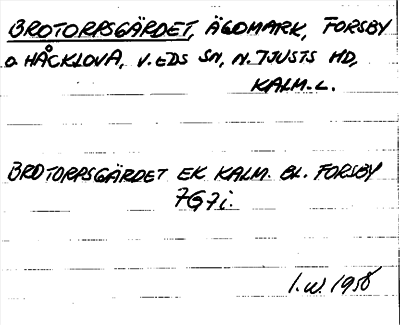 BROTORPSGÄRDET, ÄGOMARK, FORSBY
O HÅCKLOVA, V. EDS SN, N. TJUSTS HD,
KALM. L.
BROTORPSGÄRDET EK. KALM. BL. FORSBY
7G7i.
I.W. 1958